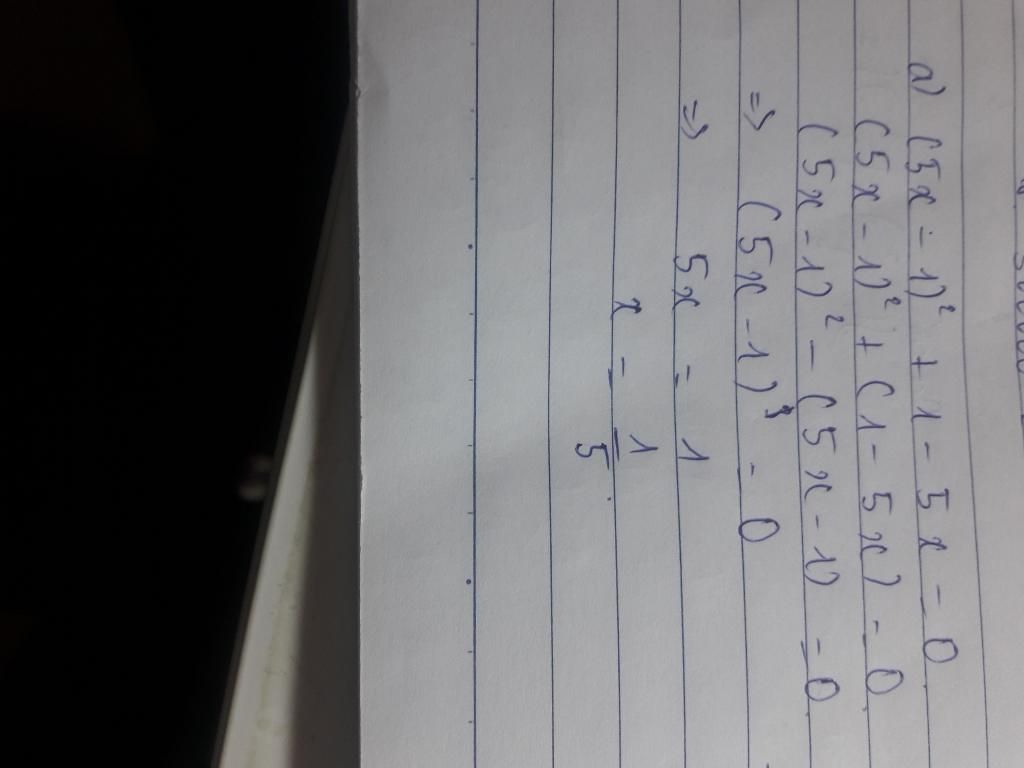 a) (5x - 1)² + 1 - 5x = 0
(5x - 1)² + (1 - 5x) = 0
(5x - 1)² - (5x - 1) = 0
=> (5x - 1)³ = 0
=> 5x = 1
x = 1/5.